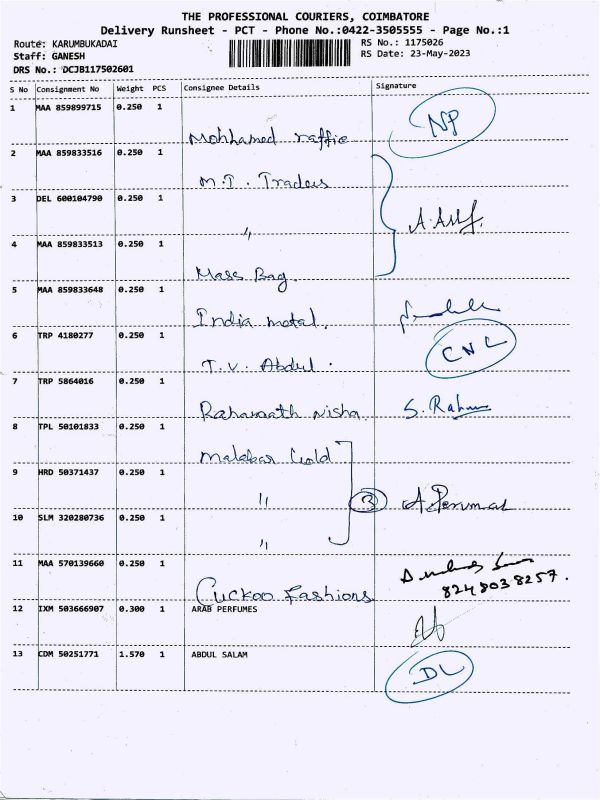 THE PROFESSIONAL COURIERS, COIMBATORE
Delivery Runsheet - PCT - Phone No.:0422-3505555 - Page No.:1
Route: KARUMBUKADAI RS No.: 1175026
Staff: GANESH RS Date: 23-May-2023
DRS No.: DCJB117502601
S No Consignment No Weight PCS Consignee Details Signature
1 MAA 859899715 0.250 1 Mohhamed raffic NP
2 MAA 859833516 0.250 1 M.T. Traders
3 DEL 600104790 0.250 1 "
4 MAA 859833513 0.250 1 Mass Bag.
5 MAA 859833648 0.250 1 India metal.
6 TRP 4180277 0.250 1 T.V. Abdul. CNL
7 TRP 5864016 0.250 1 Rahamath nisha. S. Rahma
8 TPL 50101833 0.250 1 Malabar Gold
9 HRD 50371437 0.250 1 " 3 A Perumal
10 SLM 320280736 0.250 1 "
11 MAA 570139660 0.250 1 Cuckoo Fashions 8248038257.
12 IXM 503666907 0.300 1 ARAB PERFUMES
13 CDM 50251771 1.570 1 ABDUL SALAM DL